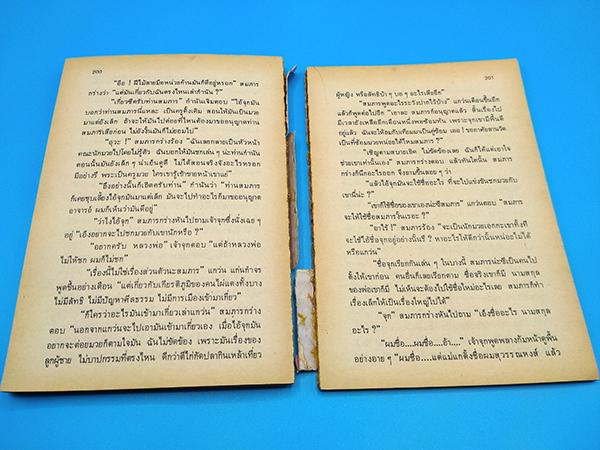 200
"ฮือ ! ฝีไม้ลายมือหน่วยก้านมันก็ดีอยู่หรอก" สมภาร
กร่างว่า "แต่มันเกี่ยวกับฉันตรงไหนเล่ากำนัน ?"
"เกี่ยวซีครับท่านสมภาร" กำนันเจิมตอบ "ไอ้จุกมัน
บอกว่าท่านสมภารนี่แหละ เป็นครูดั้งเดิม สอนให้มันเป็นมวย
มาแต่ยังเล็ก ถ้าจะให้มันไปต่อยที่ไหนต้องมาขออนุญาตท่าน
สมภารเสียก่อน ไม่ยังงั้นมันก็ไม่ยอมไป"
"อุวะ !" สมภารกร่างร้อง "ฉันเลยกลายเป็นหัวหน้า
คณะนักมวยไปโดยไม่รู้ตัว ฉันบอกให้มันชกเล่น ๆ น่ะท่านกำนัน
ตอนนั้นมันยังเล็ก ๆ น่าเอ็นดูดี ไม่ได้สอนจริงจังอะไรหรอก
มีอย่างรึ พระเป็นครูมวย ใครเขารู้เข้าขายหน้าเขาแย่"
"ยังงี้อย่างนั้นก็เชิดครับท่าน" กำนันว่า "ท่านสมภาร
ก็เคยชุบเลี้ยงไอ้จุกมันมาแต่เล็ก มันจะไปทำอะไรก็มาขออนุญาต
อาจารย์ ผมก็เห็นว่ามันดีอยู่"
"ว่าไงไอ้จุก" สมภารกร่างหันไปถามเจ้าจุกซึ่งนั่งเฉย ๆ
อยู่ "เอ็งอยากจะไปชกมวยกับเขานักหรือ ?"
"อยากครับ หลวงพ่อ" เจ้าจุกตอบ "แต่ถ้าหลวงพ่อ
ไม่ให้ชก ผมก็ไม่ชก"
"เรื่องนี้ไม่ใช่เรื่องส่วนตัวนะสมภาร" แกว่น แก่นกำจร
พูดขึ้นอย่างเตือน "แต่เกี่ยวกับเกียรติภูมิของคนไผ่แดงทั้งบาง
ไม่มีลัทธิ ไม่มีปัญหาศีลธรรม ไม่มีการเมืองเข้ามาเกี่ยว"
"ก็ใครว่าอะไรมันเข้ามาเกี่ยวเล่าแกว่น" สมภารกร่าง
ตอบ "นอกจากแกว่นจะไปเอามันเข้ามาเกี่ยวเอง เมื่อไอ้จุกมัน
อยากจะต่อยมวยก็ตามใจมัน ฉันไม่ขัดข้อง เพราะมันเรื่องของ
ลูกผู้ชาย ไม่บาปกรรมที่ตรงไหน ดีกว่าตีไก่กัดปลากินเหล้าเที่ยว
201
ผู้หญิง หรือลัทธิบ้า ๆ บอ ๆ อะไรเสียอีก"
"สมภารพูดอะไรระวังปากไว้บ้าง" แกว่นเตือนขึ้นอีก
แล้วก็พูดต่อไปอีก "เอาละ สมภารก็อนุญาตแล้ว สิ้นเรื่องไป
มีเวลายังเหลืออีกเดือนหนึ่งพอซ้อมทัน เพราะจุกเขามีพื้นดี
อยู่แล้ว ฉันจะให้อมกับเทือมมาเป็นคู่ซ้อม เออ ! ขอยาศัยลานวัด
เป็นที่ซ้อมมวยหน่อยได้ไหมสมภาร"
"เชิญตามสบายเชิด ไม่ขัดข้องเลย ฉันก็ได้แต่เอาใจ
ช่วยเขาเท่านั้นเอง" สมภารกร่างตอบ แล้วทันใดนั้น สมภาร
กร่างก็นึกอะไรออก จึงถามขึ้นลอย ๆ ว่า
"แล้วไอ้จุกมันจะใช้ชื่ออะไร ที่จะไปแข่งขันชกมวยกับ
เขานี่น่ะ ?"
"เขาก็ใช้ชื่อของเขาเองน่ะซีสมภาร" แกว่นตอบ "สมภาร
จะให้ใช้ชื่อสมภารงั้นเรอะ ?"
"อาไร้ !" สมภารร้อง "จะเป็นนักมวยเอกกะเขาทั้งที
จะใช้ไอ้ชื่อจุกอยู่อย่างนั้นรึ ? หาอะไรให้ดีกว่านั้นหน่อยไม่ได้
หรือแกว่น"
"ชื่อจุกเรียกกันเล่น ๆ ในบางนี้ สมภารน่ะซีเป็นคนไป
ตั้งให้เขาก่อน คนอื่นก็เลยเรียกตาม ชื่อจริงเขาก็มี นามสกุล
ของพ่อเขาก็มี ไม่เห็นจะต้องไปใช้ชื่อใหม่อะไรเลย สมภารก็ทำ
เรื่องเล็กให้เป็นเรื่องใหญ่ไปได้"
"จุก" สมภารกร่างหันไปถาม "เอ็งชื่ออะไร นามสกุล
อะไร ?"
"ผมชื่อ....ผมชื่อ....อ้า...." เจ้าจุกพูดพลางก้มหน้าดูพื้น
อย่างอาย ๆ "ผมชื่อ....แต่แม่แกตั้งชื่อผมสุวรรณหงส์ แล้ว